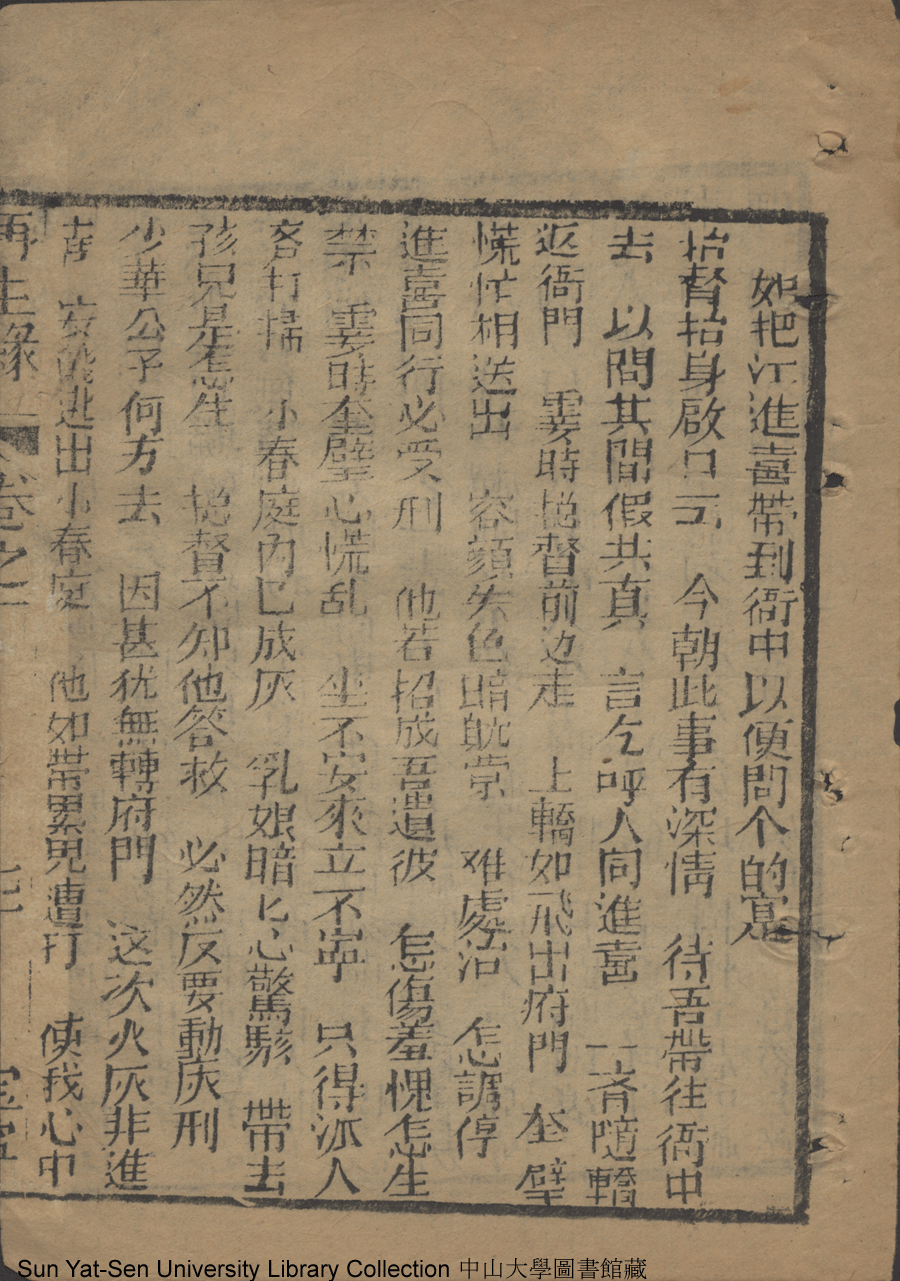 如把江進喜帶到衙中以便問个的寔
抬督抬身啟口云　今朝此事有深情　待吾帶往衙中
去　以問其間假共真　言乞呼人同進喜　一斉隨轎
返衙門　霎時揔督前边走　上轎如飛出府門　奎璧
慌忙相送出　容顔失色暗躭驚　难處治　怎調停
進喜同行必受刑　他若招成吾遣彼　怎傷羞愧怎生
禁　霎時奎璧心慌乱　坐不安來立不寧　只得派人
客打掃　小春庭內已成灰　乳娘暗匕心驚駭　帶去
孩兒是怎生　揔督不知他答救　必然反要動灰刑
少華公子何方去　因甚犹無轉府門　这次火灰非進
喜　安能逃出小春庭　他如帶累兒遭打　使我心中
再生緣　卷之二　七二　宝寧
Sun Yat-Sen University Library Collection 中山大學圖書館藏